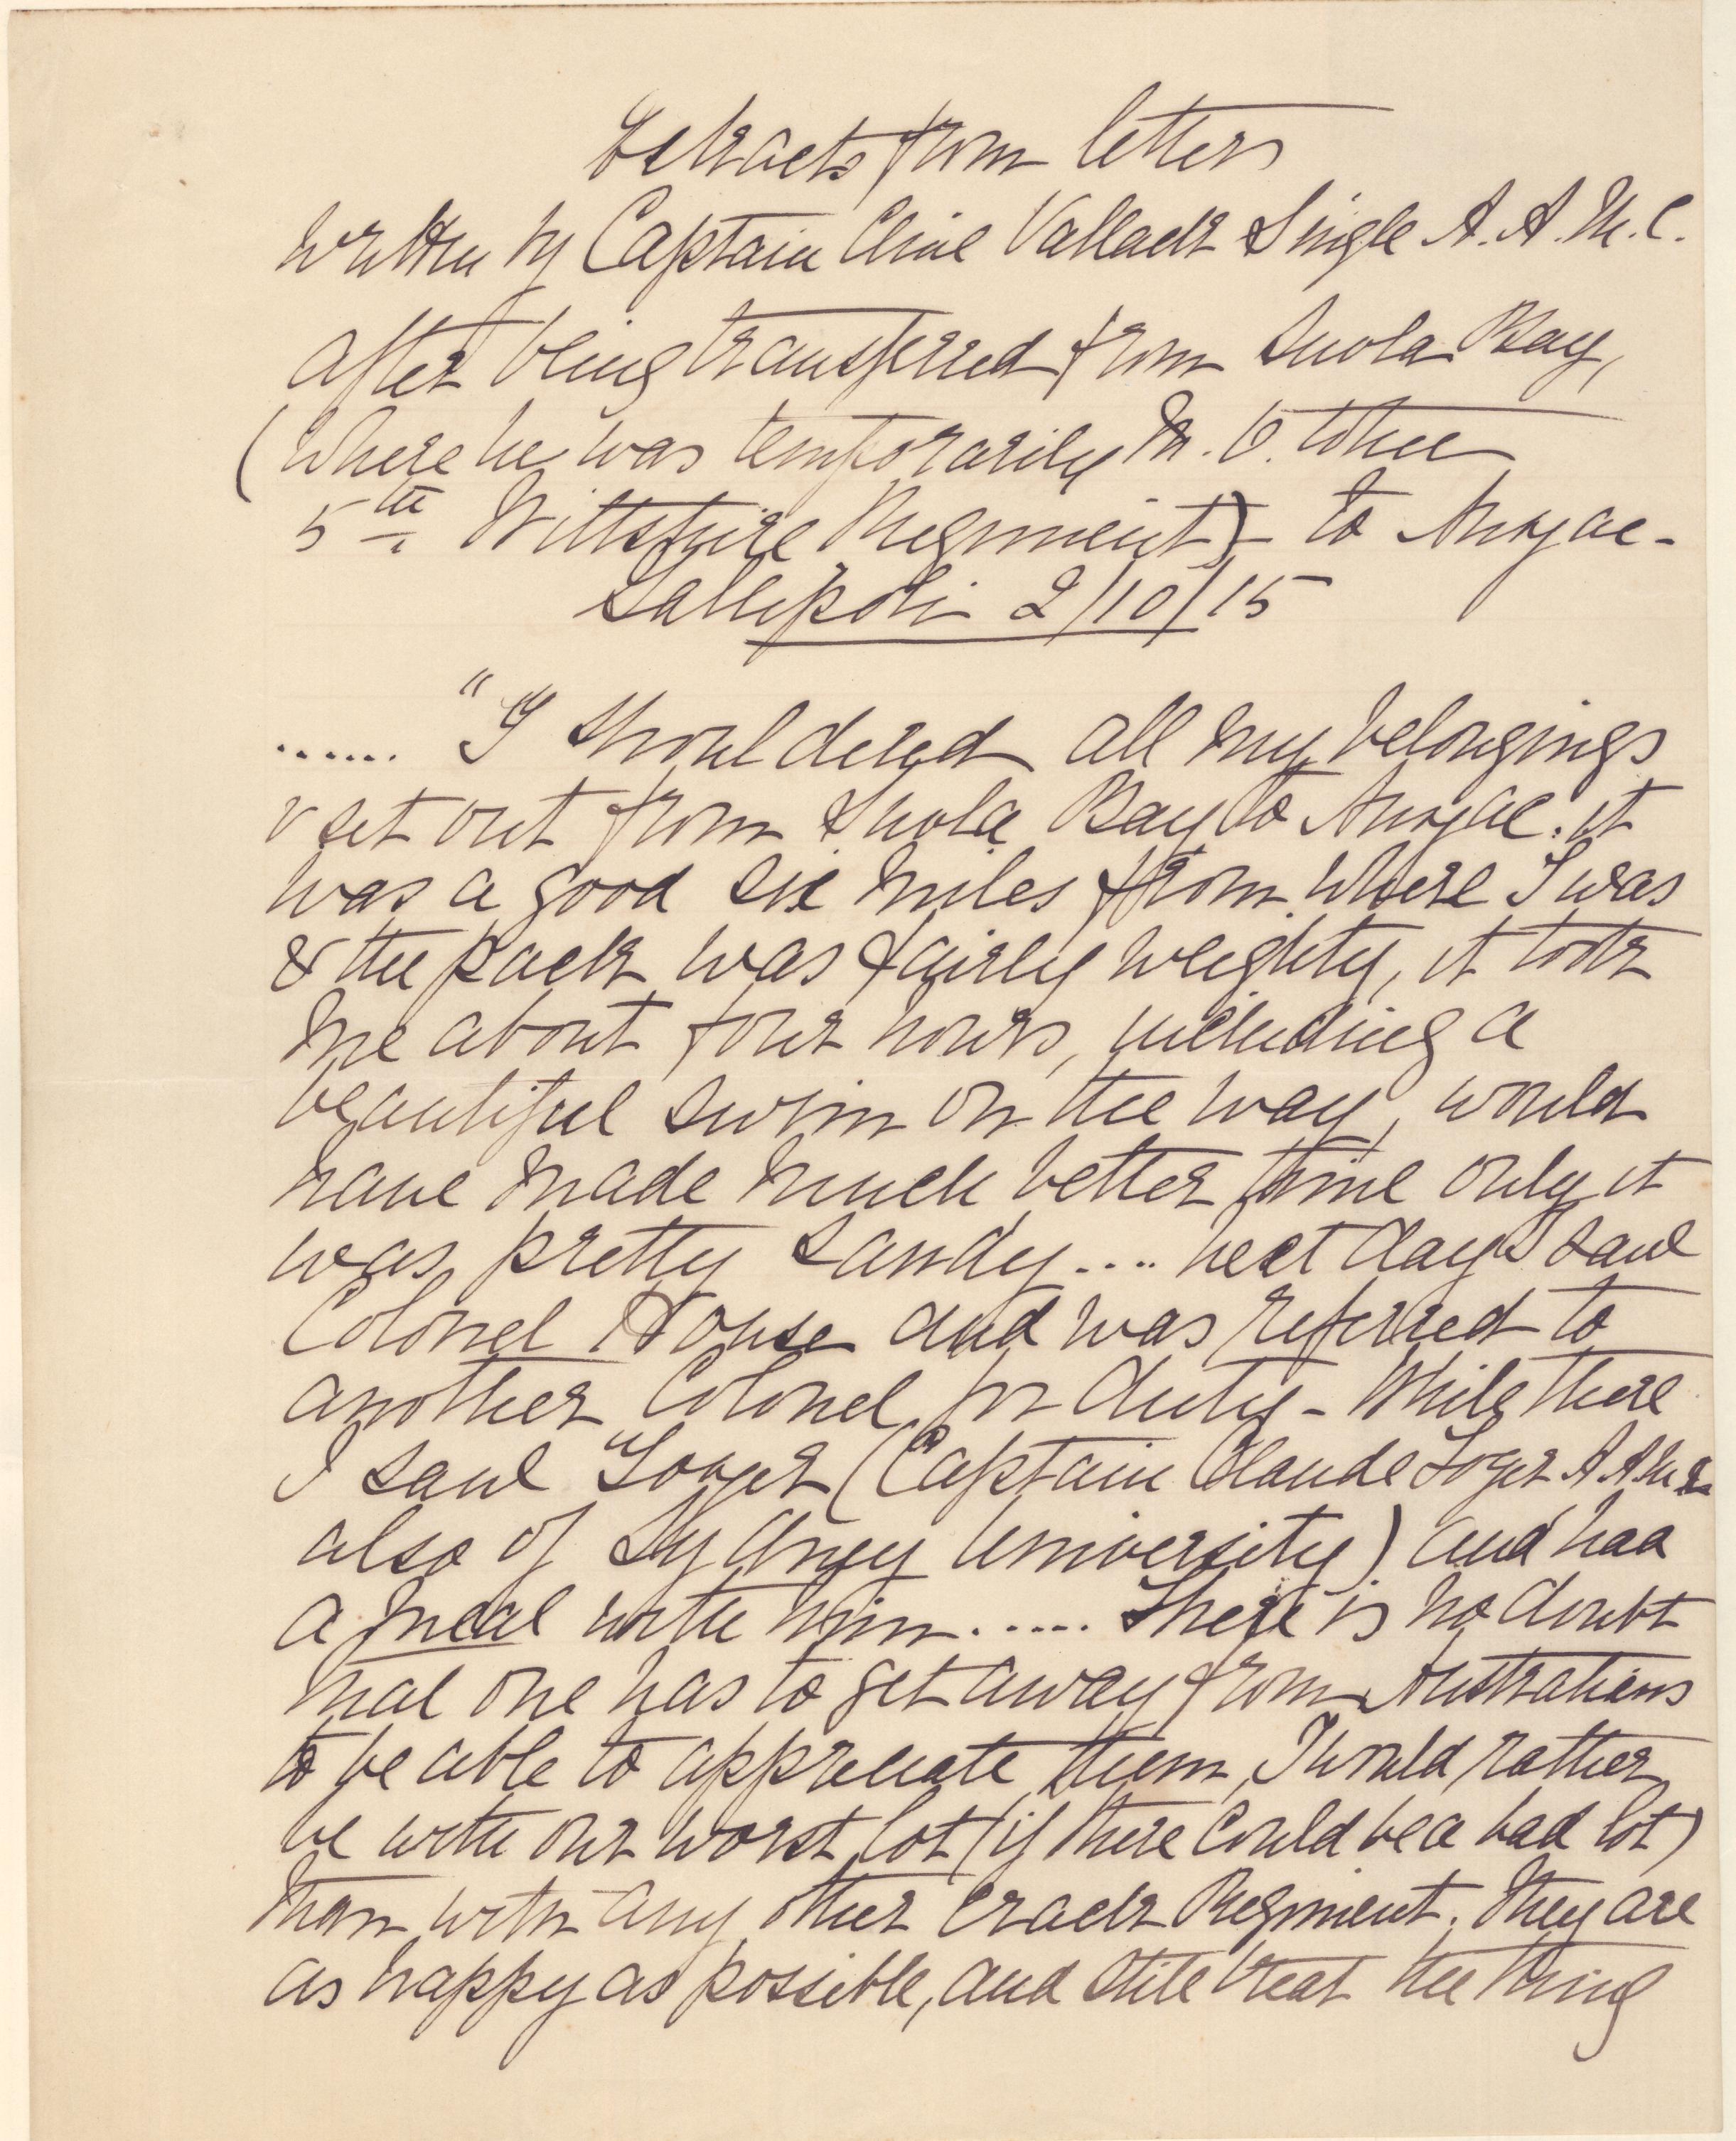 Extracts from letters
written by Captain Clive Vallack Single A.A.M.C.
after being transferred from Suvla Bay,
(where he was temporarily M.O. to the
5th Wiltshire Regiment) - to Anzac -
Gallipoli 2/10/15
...... "I shouldered all my belongings
& set out from Suvla Bay to Anzac. it
was a good six miles from where I was
& the pack was fairly weighty, it took
me about four hours, including a
beautiful swim on the way, would
have made much better time only it
was pretty sandy.... next day I saw
Colonel House and was referred to
another Colonel for duty - While there
I saw "Tozer (Captain Claude Tozer A.A.M.C.
also of Sydney University) and had
a meal with him...... There is no doubt
that one has to get away from Australians
to be able to appreciate them, I would rather
be with our worst lot (if there could be a bad lot)
than with any other crack Regiment. They are
as happy as possible, and still treat the thing